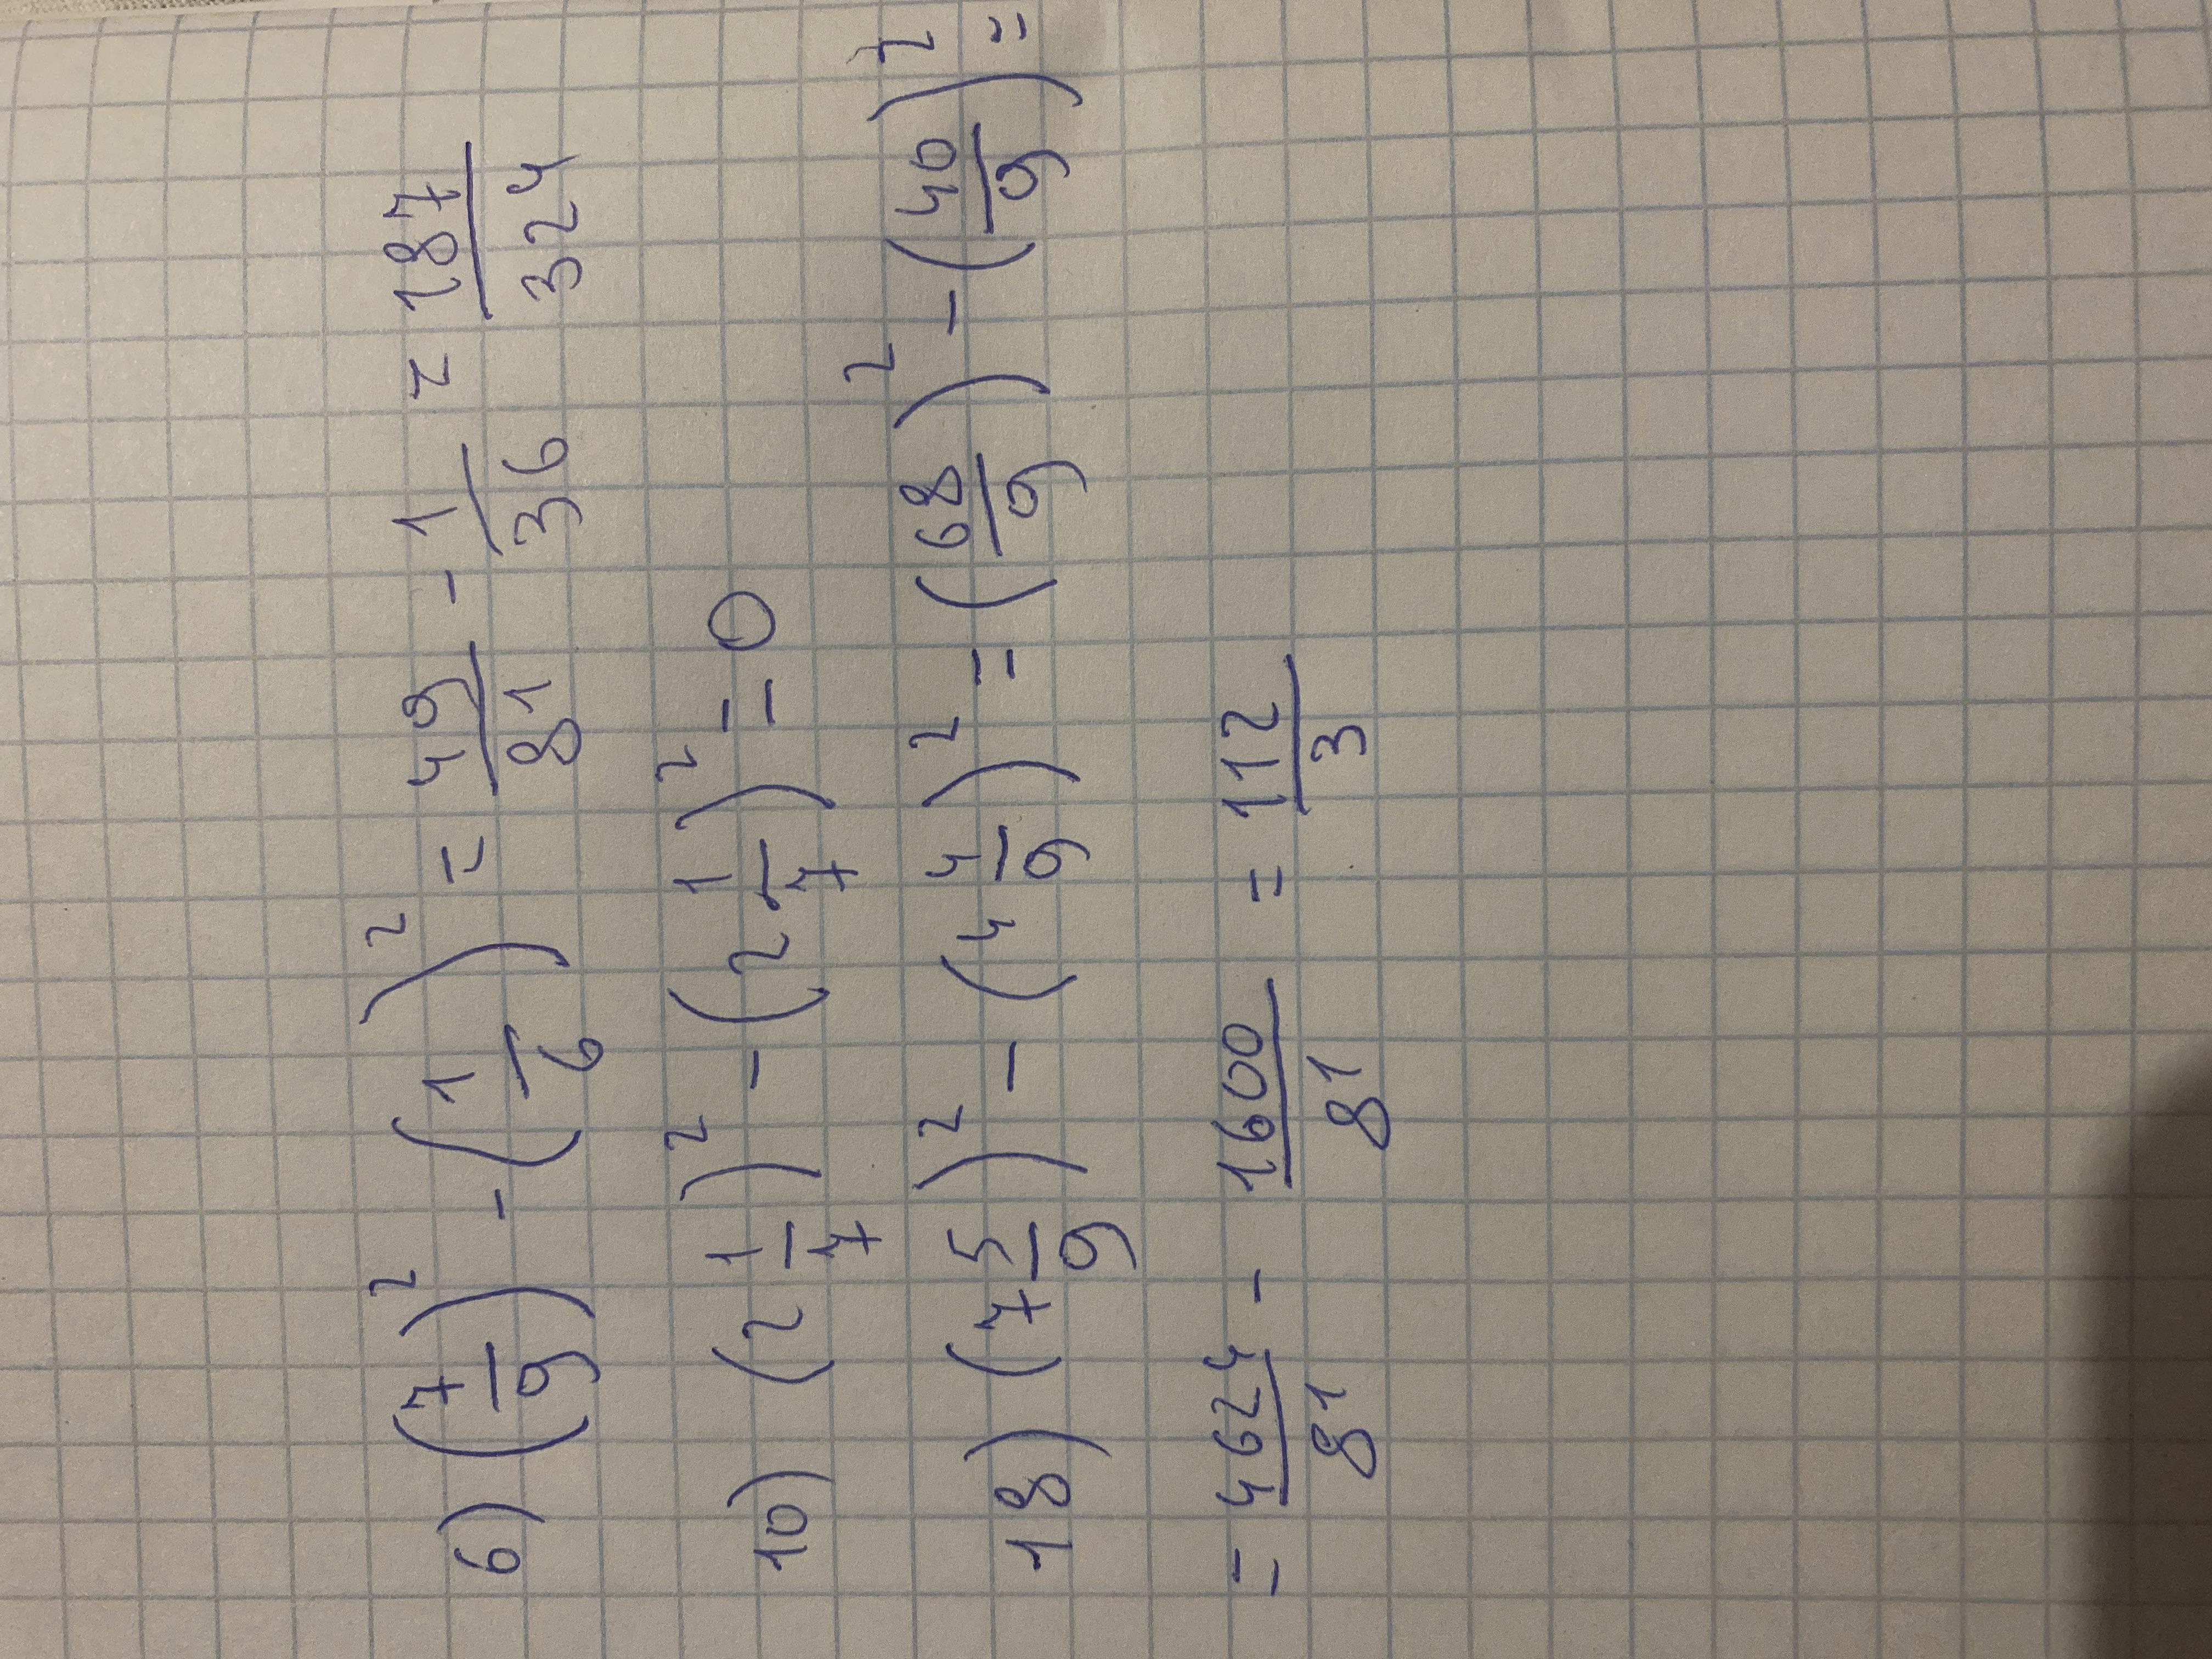 6) (7/9)² - (1/6)² = 49/81 - 1/36 = 187/324
10) (2 1/7)² - (2 1/7)² = 0
18) (7 5/9)² - (4 4/9)² = (68/9)² - (40/9)² =
= 4624/81 - 1600/81 = 112/3